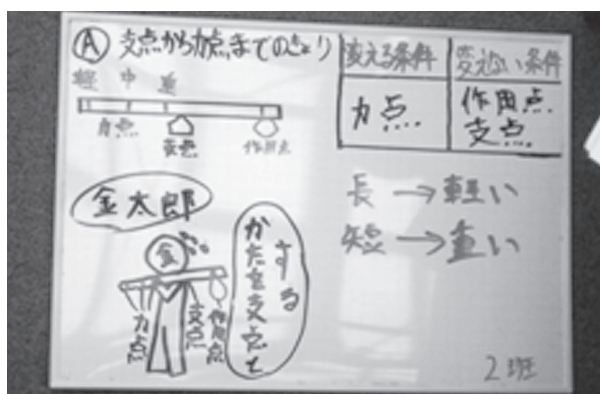 Ⓐ 支点から力点までのきょり
軽 中 重
力点
支点
作用点
変える条件 変えない条件
力点 作用点
支点
長 → 軽い
短 →重い
金太郎
金
力点
支点
作用点
かたを支点と
する
2班